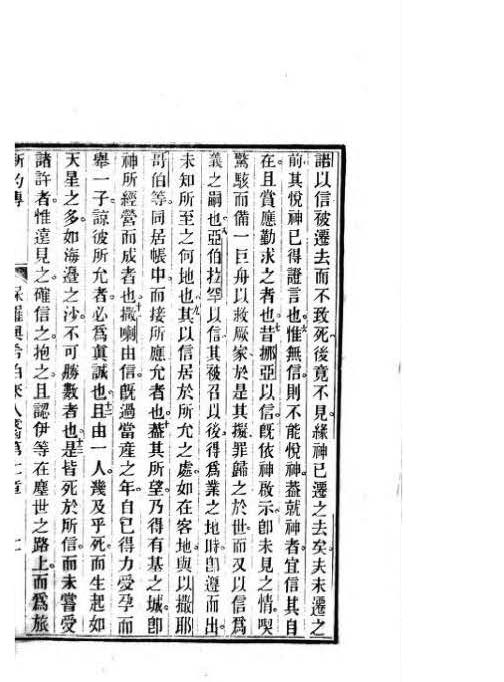 語以信被遷去而不致死後竟不見緣神已遷之去矣夫未遷之
前其悅神已得證言也惟無信則不能悅神葢就神者宜信其自
在且賞應勤求之者也昔挪亞以信旣依神啟示卽未見之情喫
驚駭而備一巨舟以救厥家於是其擬罪歸之於世而又以信為
義之嗣也亞伯拉罕以信其被召以後得為業之地時卽遵而出
未知所至之何地也其以信居於所允之處如在客地與以撒耶
哥伯等同居帳中而接所應允者也葢其所望乃得有基之城卽
神所經營而成者也撒喇由信旣過當產之年自已得力受孕而
舉一子諒彼所允者必為真誠也且由一人幾及乎死而生起如
天星之多如海邊之沙不可勝數者也是皆死於所信而未嘗受
諸許者惟遠見之確信之抱之且認伊等在塵世之路上而為旅
新約傳 保羅與希伯來人書第十一章